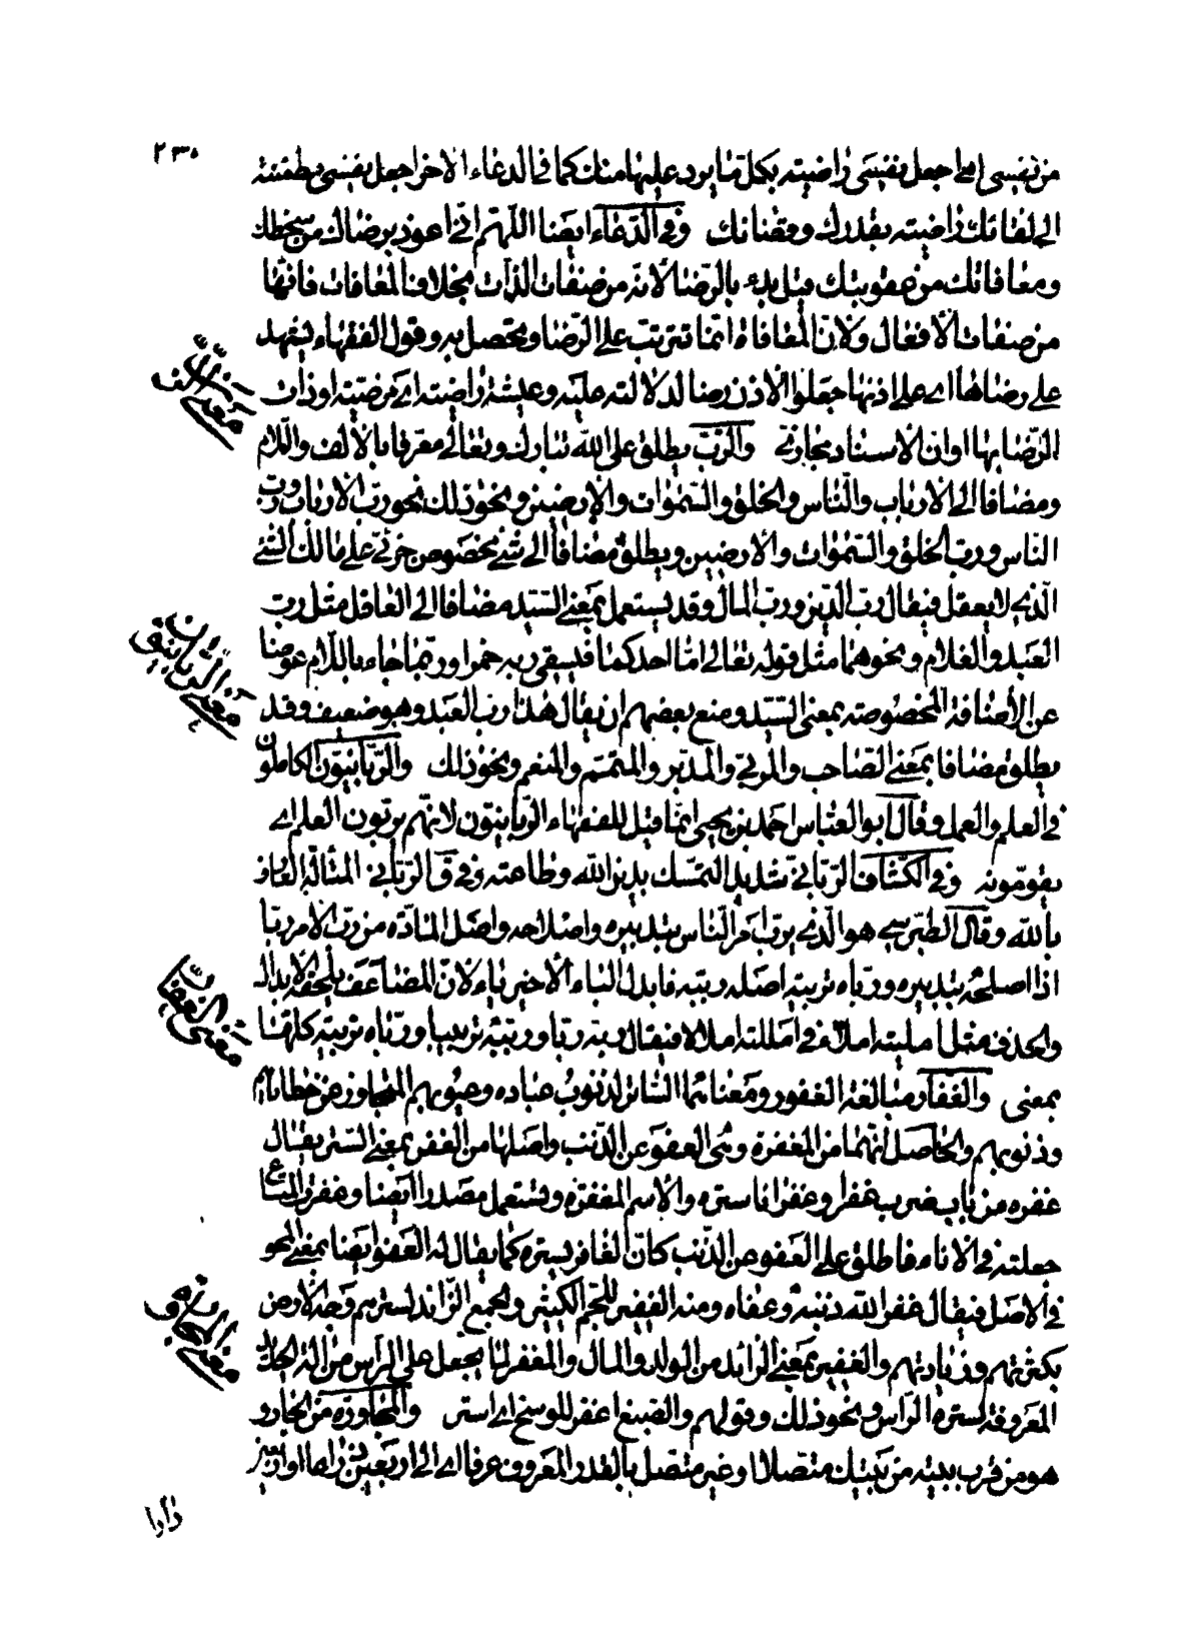 ٢٣٠
من نفسى اى اجعل نفسى راضيته بكل ما يرد عليها منك كما فى الدعاء الاخر اجعل نفسى مطمئنة
الى لقائك راضيته بقدرك وقضائك وفى الدعاء ايضا اللهم انى اعوذ برضاك من سخطك
ومعافاتك من عقوبتك قيل بدء بالرضا لانه من صفات الذات بخلاف المعافات فانها
من صفات الافعال ولان المعافاة انما تترتب على الرضا ويحصل به وقول الفقهاء يشهد
على رضاها اى على اذنها جعلوا الاذن رضا لدلالته عليه وعيشة راضيته اى مرضيته او ذات
الرضا بها او ان الاسناد مجازى والرب يطلق على الله تبارك وتعالى معرفا بالالف واللام
ومضافا الى الارباب والناس والخلق والسموات والارضين ونحو ذلك نحو رب الارباب ورب
الناس ورب الخلق والسموات والارضين ويطلق مضافا الى شئ مخصوص جزئى على مالك الشئ
الذى لا يعقل فيقال رب الدين ورب المال وقد يستعمل بمعنى السيد مضافا الى العاقل مثل رب
العبد والغلام ونحوهما مثل قوله تعالى اما احدكما فيسقى ربه خمرا وربما جاء باللام عوضا
عن الاضافة المخصوصته بمعنى السيد ومنع بعضهم ان يقال هذا رب العبد وهو ضعيف وقد
يطلق مضافا بمعنى الصاحب والمربى والمدبر والمتمم والمنعم ونحو ذلك والربانيون الكاملون
فى العلم والعمل وقال ابو العباس احمد بن يحيى انما قيل للفقهاء الربانيون لانهم يربون العلم اى
يقومونه وفى الكشاف الربانى شديد التمسك بدين الله وطاعته وفى ق الربانى المتأله العارف
بالله وقال الطبرسى هو الذى يرب امر الناس بتدبيره واصلاحه واصل المادة من رب الامر ربا
اذا اصلحه بتدبيره ورباه تربيته اصله ربته فابدل الباء الاخير ياء لان المضاعف يلحقه الابدال
والحذف مثل امليته املاء فى امللته املالا فيقال ربه ربا وربته تربيبا ورباه تربيته كلها
بمعنى والغفار مبالغة الغفور ومعناهما الساتر لذنوب عباده وعيوبهم المتجاوز عن خطاياهم
وذنوبهم والحاصل انهما من المغفرة وهى العفو عن الذنب واصلها من الغفر بمعنى الستر يقال
غفره من باب ضرب غفرا وغفرانا ستره والاسم المغفرة ويستعمل مصدرا ايضا وغفرت المتاع
جعلته فى الاناء فاطلق على العفو عن الذنب كان الغافر يستره كما يقال له العفو ايضا بمعنى المحو
فى الاصل فيقال غفر الله ذنبه وعفاه ومنه الغفير للجم الكثير والجمع الزائد لسترهم وجه الارض
بكثرتهم وزيادتهم والغفير بمعنى الزائد من الولد والمال والمغفر لما يجعل على الراس من الة
المعروفة لستره الراس ونحو ذلك وقولهم والصبغ اغفر للوسخ اى استر والمجاورة من الجار و
هو من قرب بيته من بيتك متصلا او غير متصل بالقدر المعروف عرفا اى الى اربعين ذراعا او
معنى الرب
معنى الربانيون
معنى الغفار
معنى المجاورة